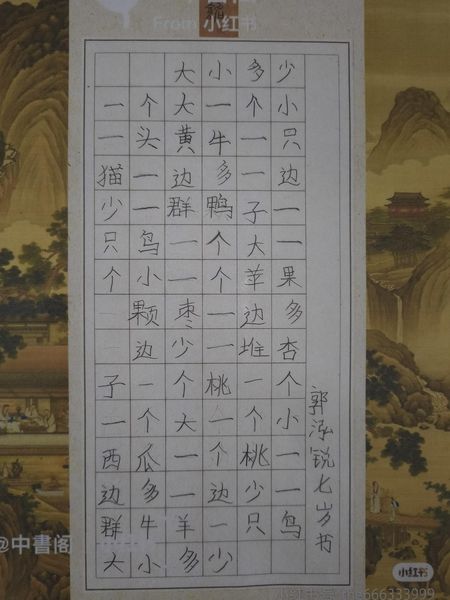 From 小红书
大小多少
一个大一个小
一头黄牛一只
猫一边多一边
少一群鸭子一
只鸟一个大一
个小一个苹果
颗枣一边多
边少一堆杏
子一个桃一个
一个大一个小
西瓜一个桃一
边多一边少一
群牛羊一只鸟
大小多少
郭泓锐七岁书
@中書閣
小红书